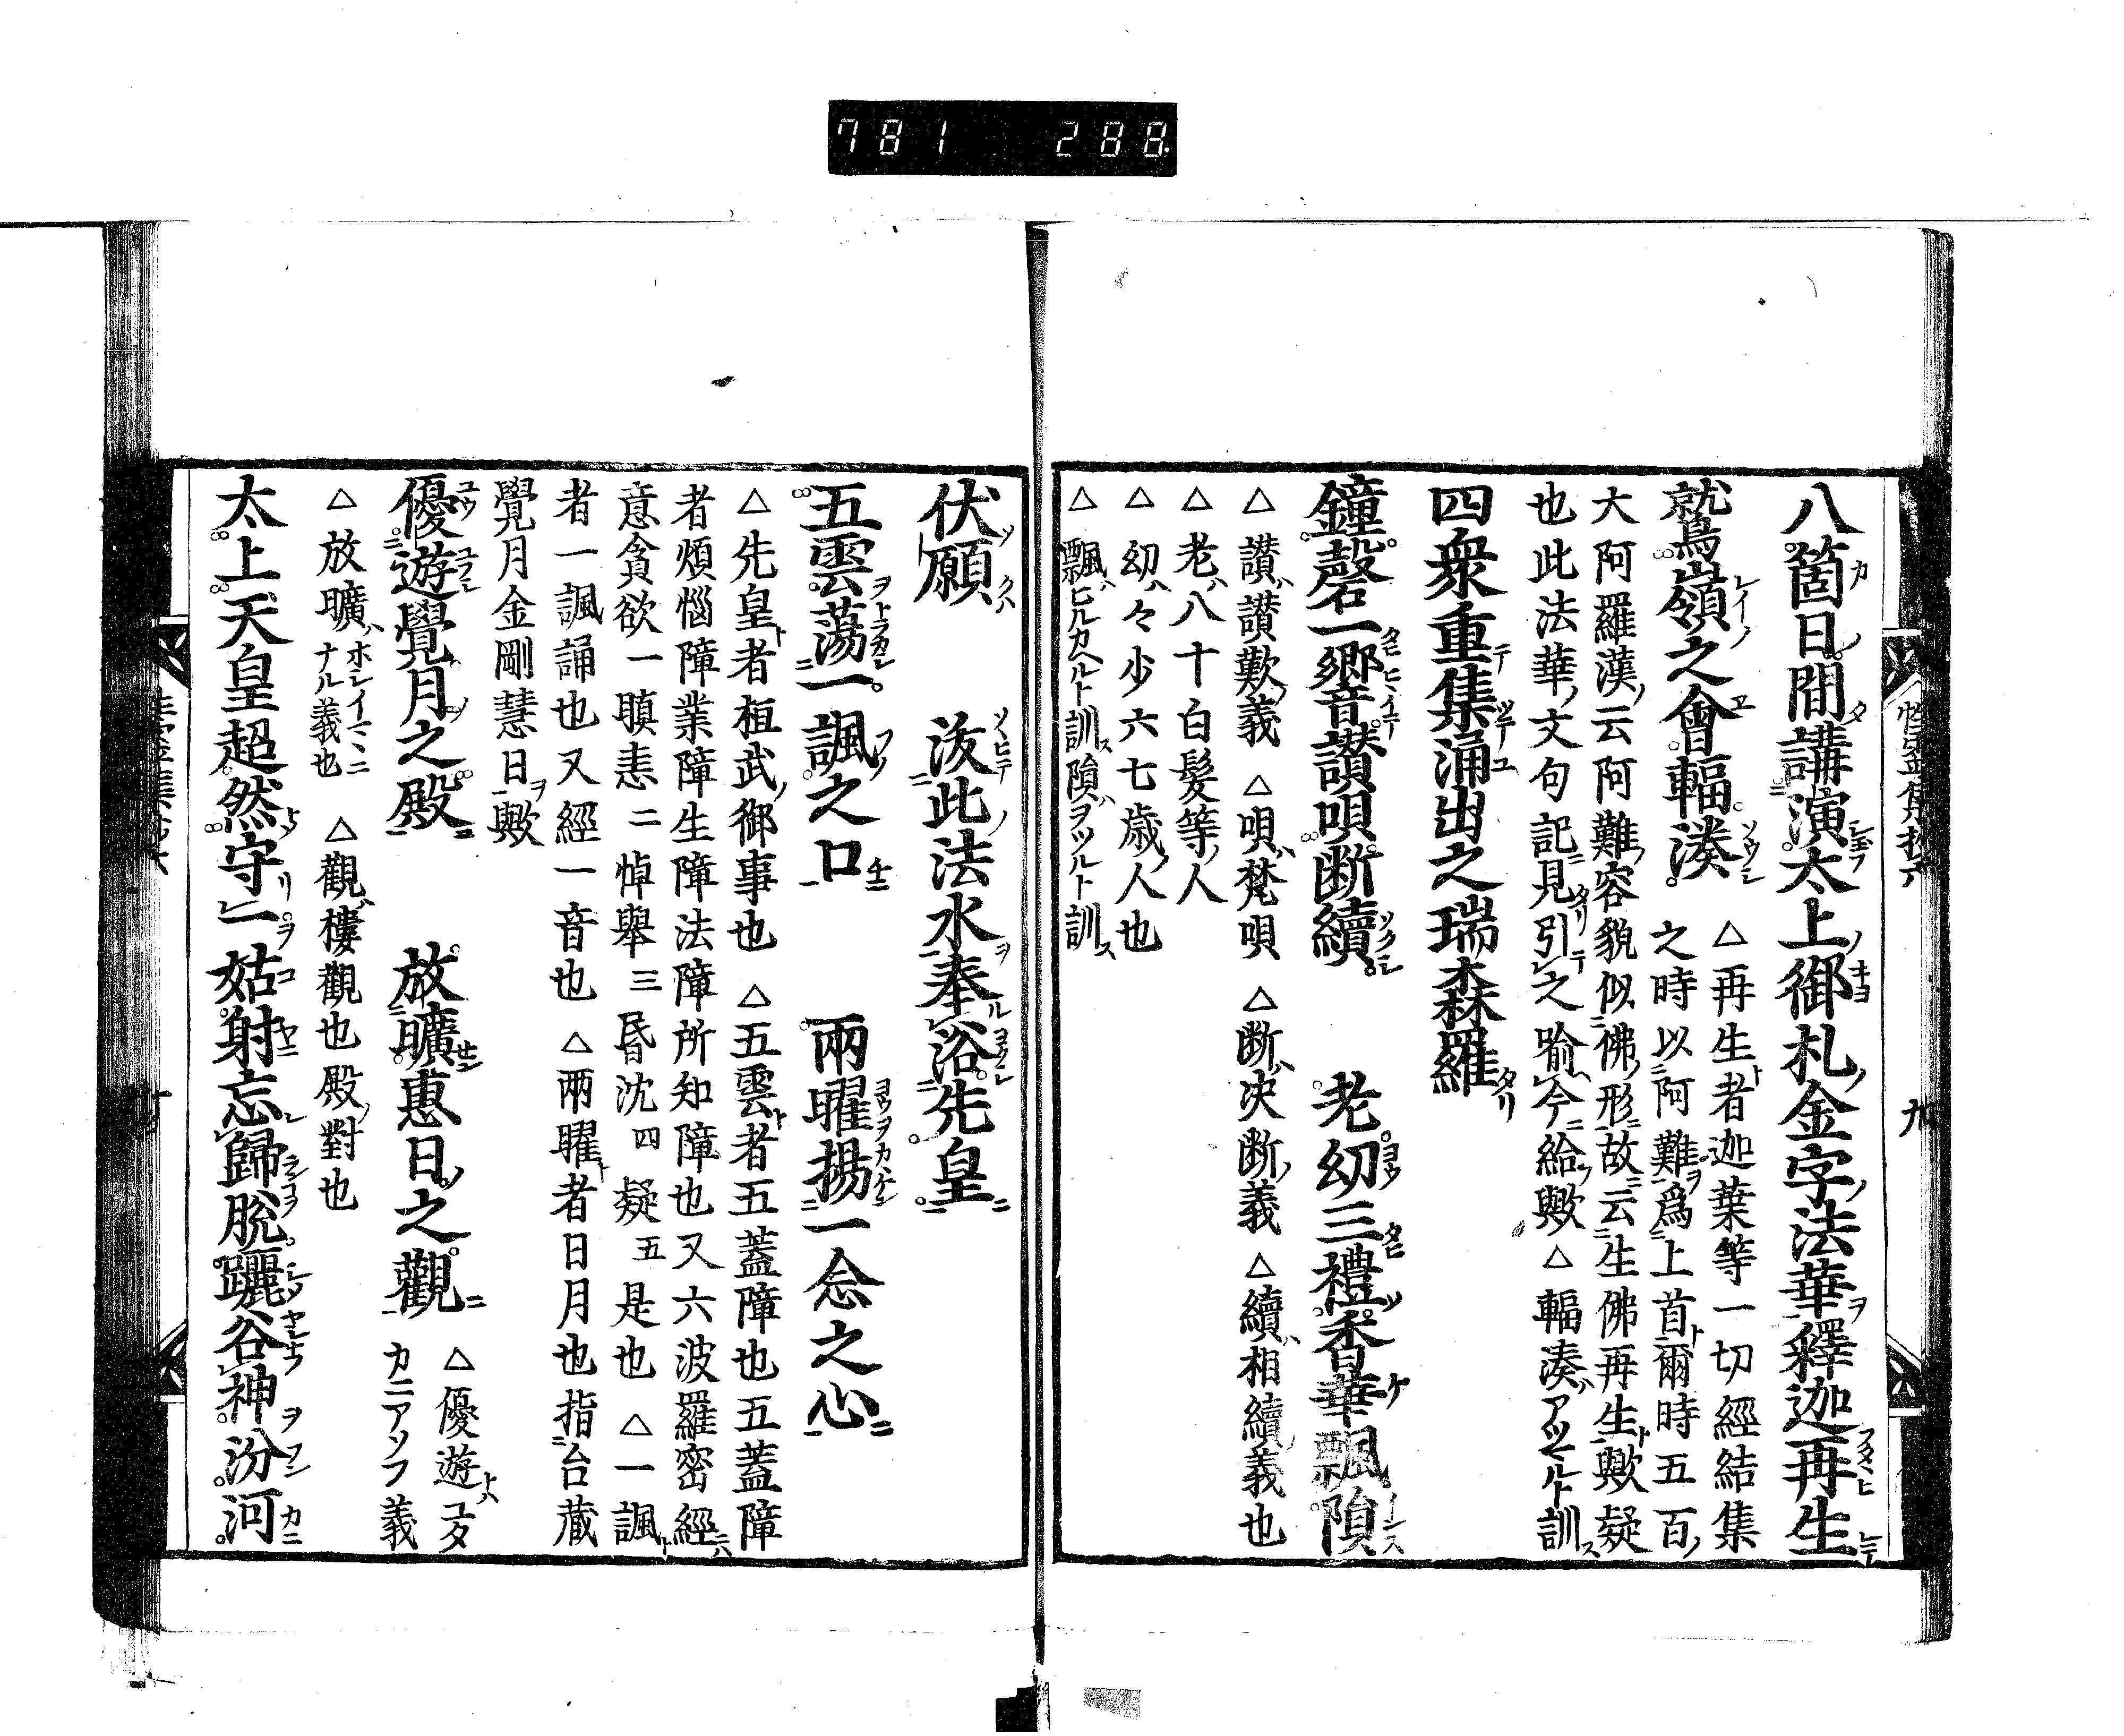 781 288
八箇日間講演太上御札金字法華釋迦再生
鷲嶺之會輻湊 △再生者迦葉等一切經結集
之時以阿難爲上首爾時五百
大阿羅漢云阿難容貌似佛形故云生佛再生歟疑
也此法華文句記見引之喩今給歟△輻湊アツマルト訓ス
四衆重集涌出之瑞森羅
鐘磬一響讃唄断續 老幼三禮香華飄隕
△讃ハ讃歎ノ義 △唄ハ梵唄 △断ハ决断ノ義 △續ハ相續義也
△老ハ八十白髮等ノ人
△幼ハ々少六七歳ノ人也
△飄ハヒルカヘルト訓ス隕ハヲツルト訓ス
伏願 汲此法水奉浴先皇
五雲蕩一諷之口 兩曜揚一念之心
△先皇ト者桓武ノ御事也 △五雲ト者五蓋障也五蓋障
者煩惱障業障生障法障所知障也又六波羅密經ニハ
意貪欲一瞋恚二悼舉三昏沈四疑五是也 △一諷ト
者一諷誦也又經一音也 △兩曜ト者日月也指台藏
覺月金剛慧日ヲ歟
優遊覺月之殿 放曠惠日之觀 △優遊トハユタ
カニアソフ義
△放曠ハホシイマヽニ
ナル義也 △觀ハ樓觀也殿ノ對也
太上天皇超然守一姑射忘歸脱躧谷神汾河
九